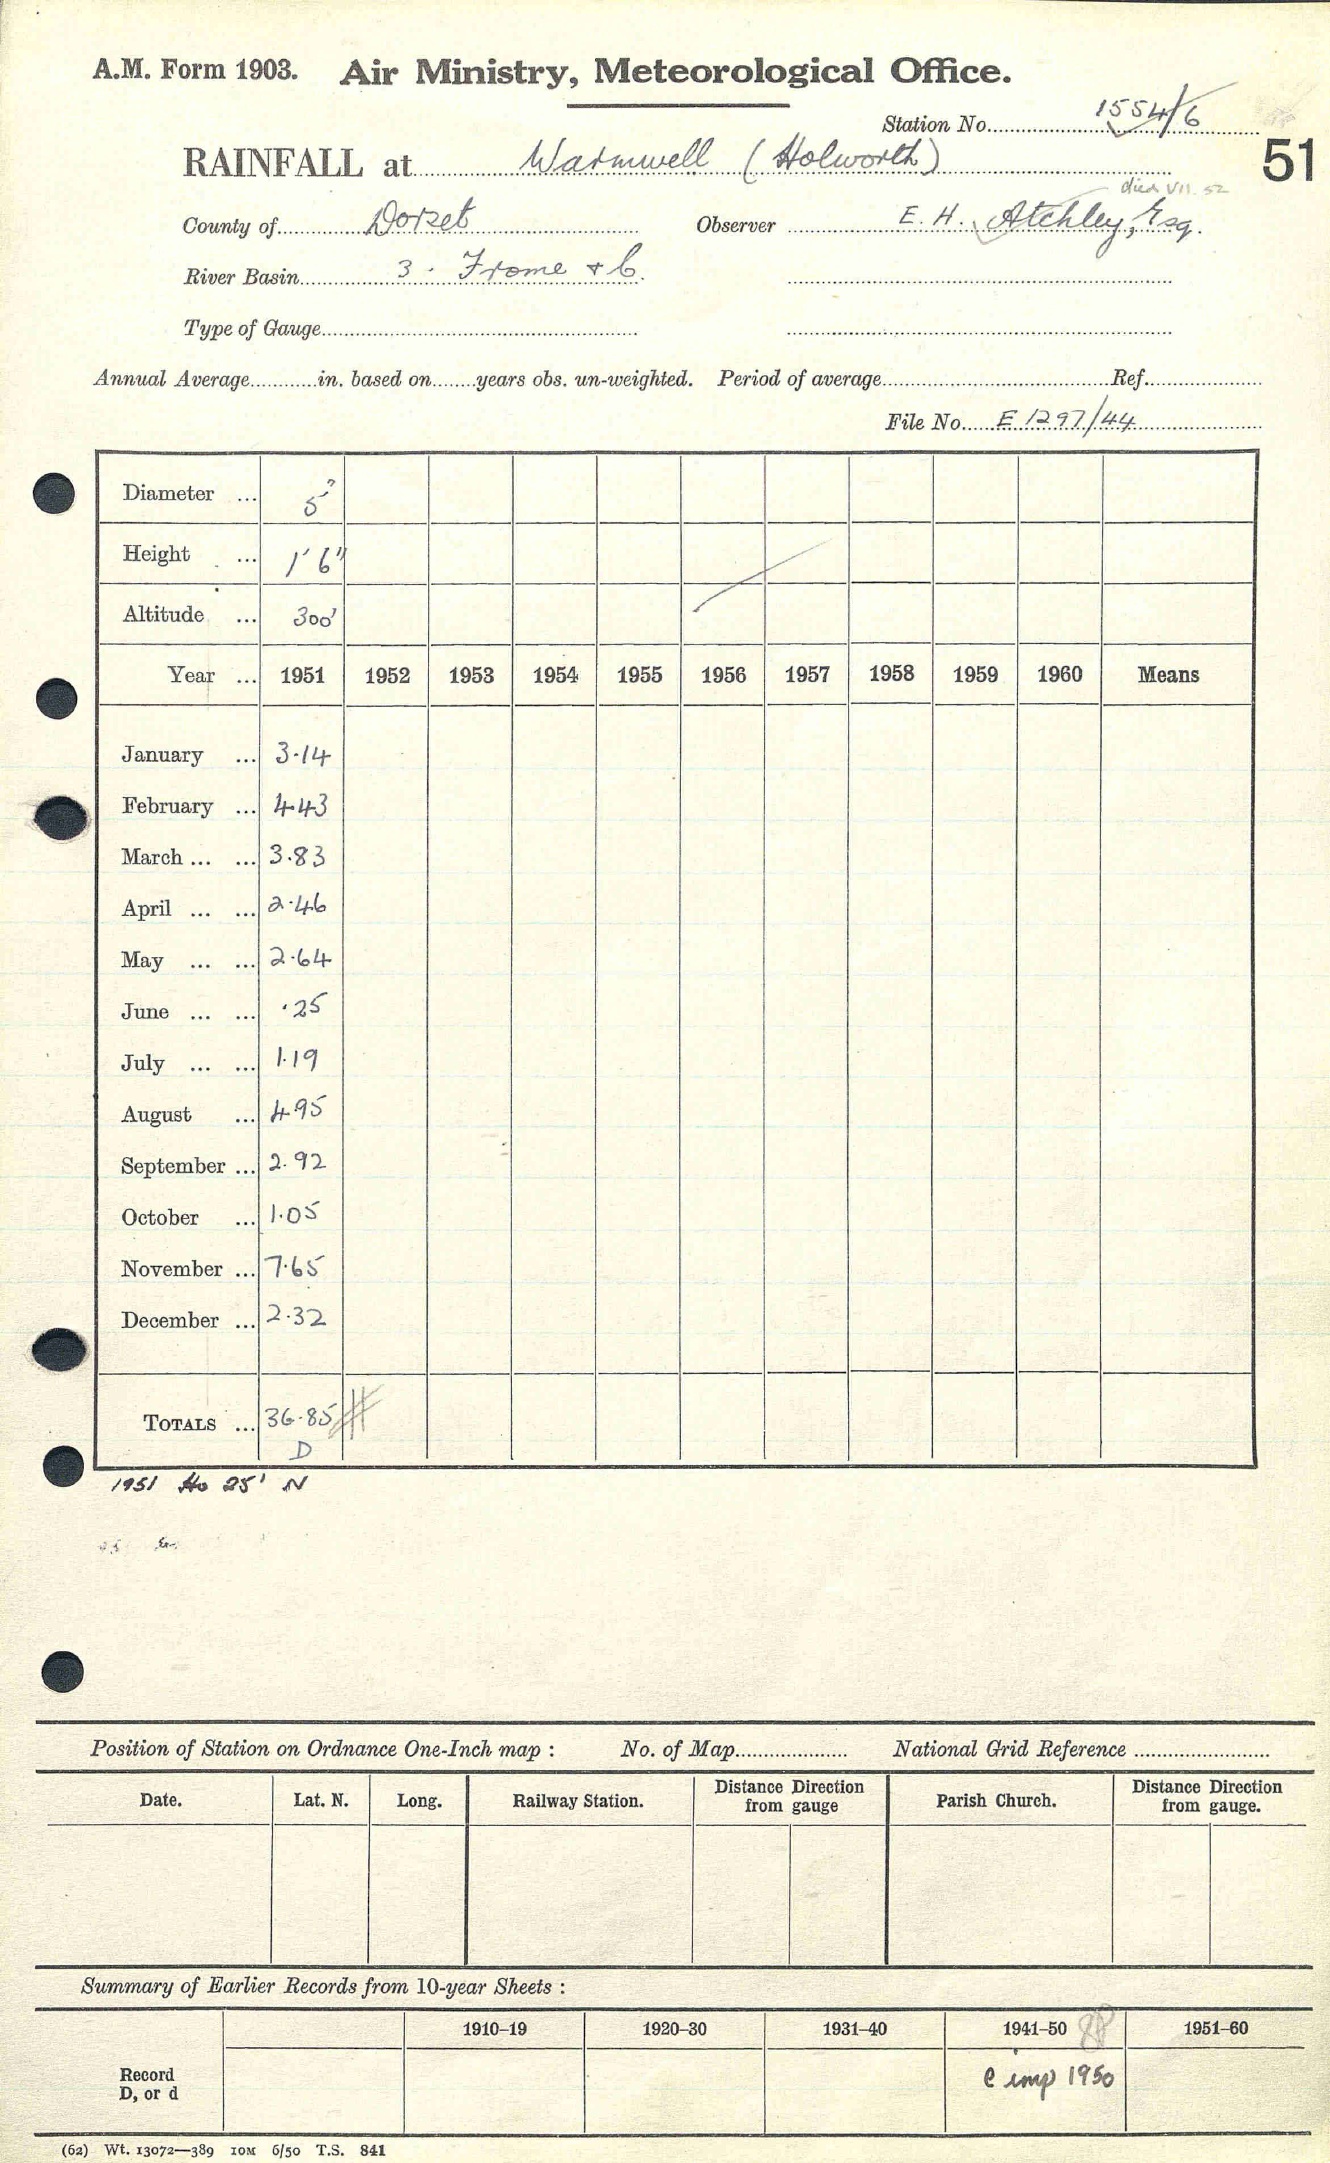 A.M. Form 1903. Air Ministry, Meteorological Office.
Station No. 1554/6
RAINFALL at Warmwell (Holworth) 51
died VII. 52
County of Dorset Observer E. H. Atchley, Esq.
River Basin 3. Frome & C.
Type of Gauge
Annual Average in. based on years obs. un-weighted. Period of average Ref.
File No. E 1297/44
Diameter ... 5"
Height ... 1' 6"
Altitude ... 300'
Year ... 1951 1952 1953 1954 1955 1956 1957 1958 1959 1960 Means
January ... 3.14
February ... 4.43
March ... ... 3.83
April ... ... 2.46
May ... ... 2.64
June ... ... .25
July ... ... 1.19
August ... 4.95
September ... 2.92
October ... 1.05
November ... 7.65
December ... 2.32
TOTALS ... 36.85
D
1951 Ho 25' N
Position of Station on Ordnance One-Inch map : No. of Map National Grid Reference
Date. Lat. N. Long. Railway Station. Distance Direction from gauge Parish Church. Distance Direction from gauge.
Summary of Earlier Records from 10-year Sheets :
1910–19 1920–30 1931–40 1941–50 1951–60
Record
D, or d
c imp 1950
(62) Wt. 13072—389 10M 6/50 T.S. 841